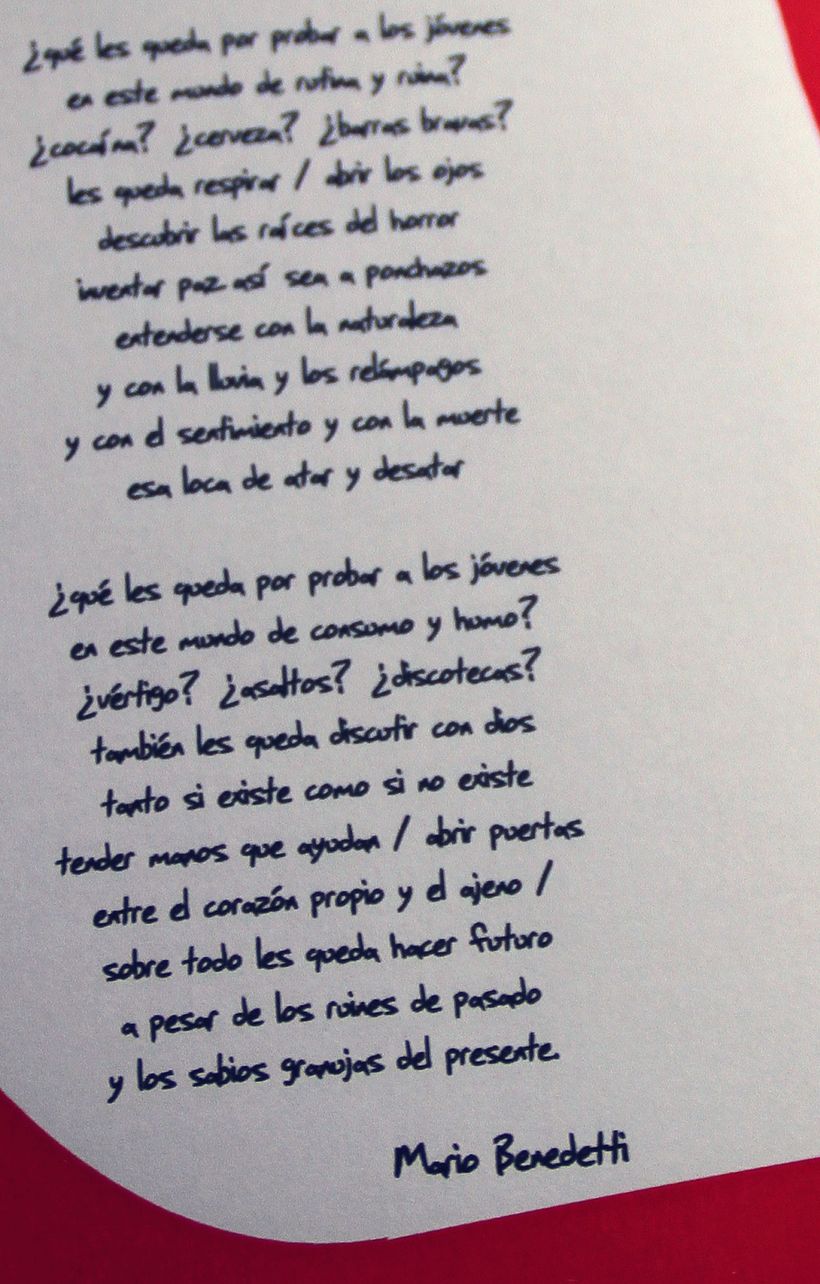 ¿qué les queda por probar a los jóvenes
en este mundo de rutina y ruina?
¿cocaína? ¿cerveza? ¿barras bravas?
les queda respirar / abrir los ojos
descubrir las raíces del horror
inventar paz así sea a ponchazos
entenderse con la naturaleza
y con la lluvia y los relámpagos
y con el sentimiento y con la muerte
esa loca de atar y desatar
¿qué les queda por probar a los jóvenes
en este mundo de consumo y humo?
¿vértigo? ¿asaltos? ¿discotecas?
también les queda discutir con dios
tanto si existe como si no existe
tender manos que ayudan / abrir puertas
entre el corazón propio y el ajeno /
sobre todo les queda hacer futuro
a pesar de los ruines de pasado
y los sabios granujas del presente.
Mario Benedetti